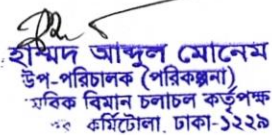 হামিদ আব্দুল মোনেম
উপ-পরিচালক (পরিকল্পনা)
বিমান চলাচল কর্তৃপক্ষ
কুর্মিটোলা, ঢাকা-১২২৯